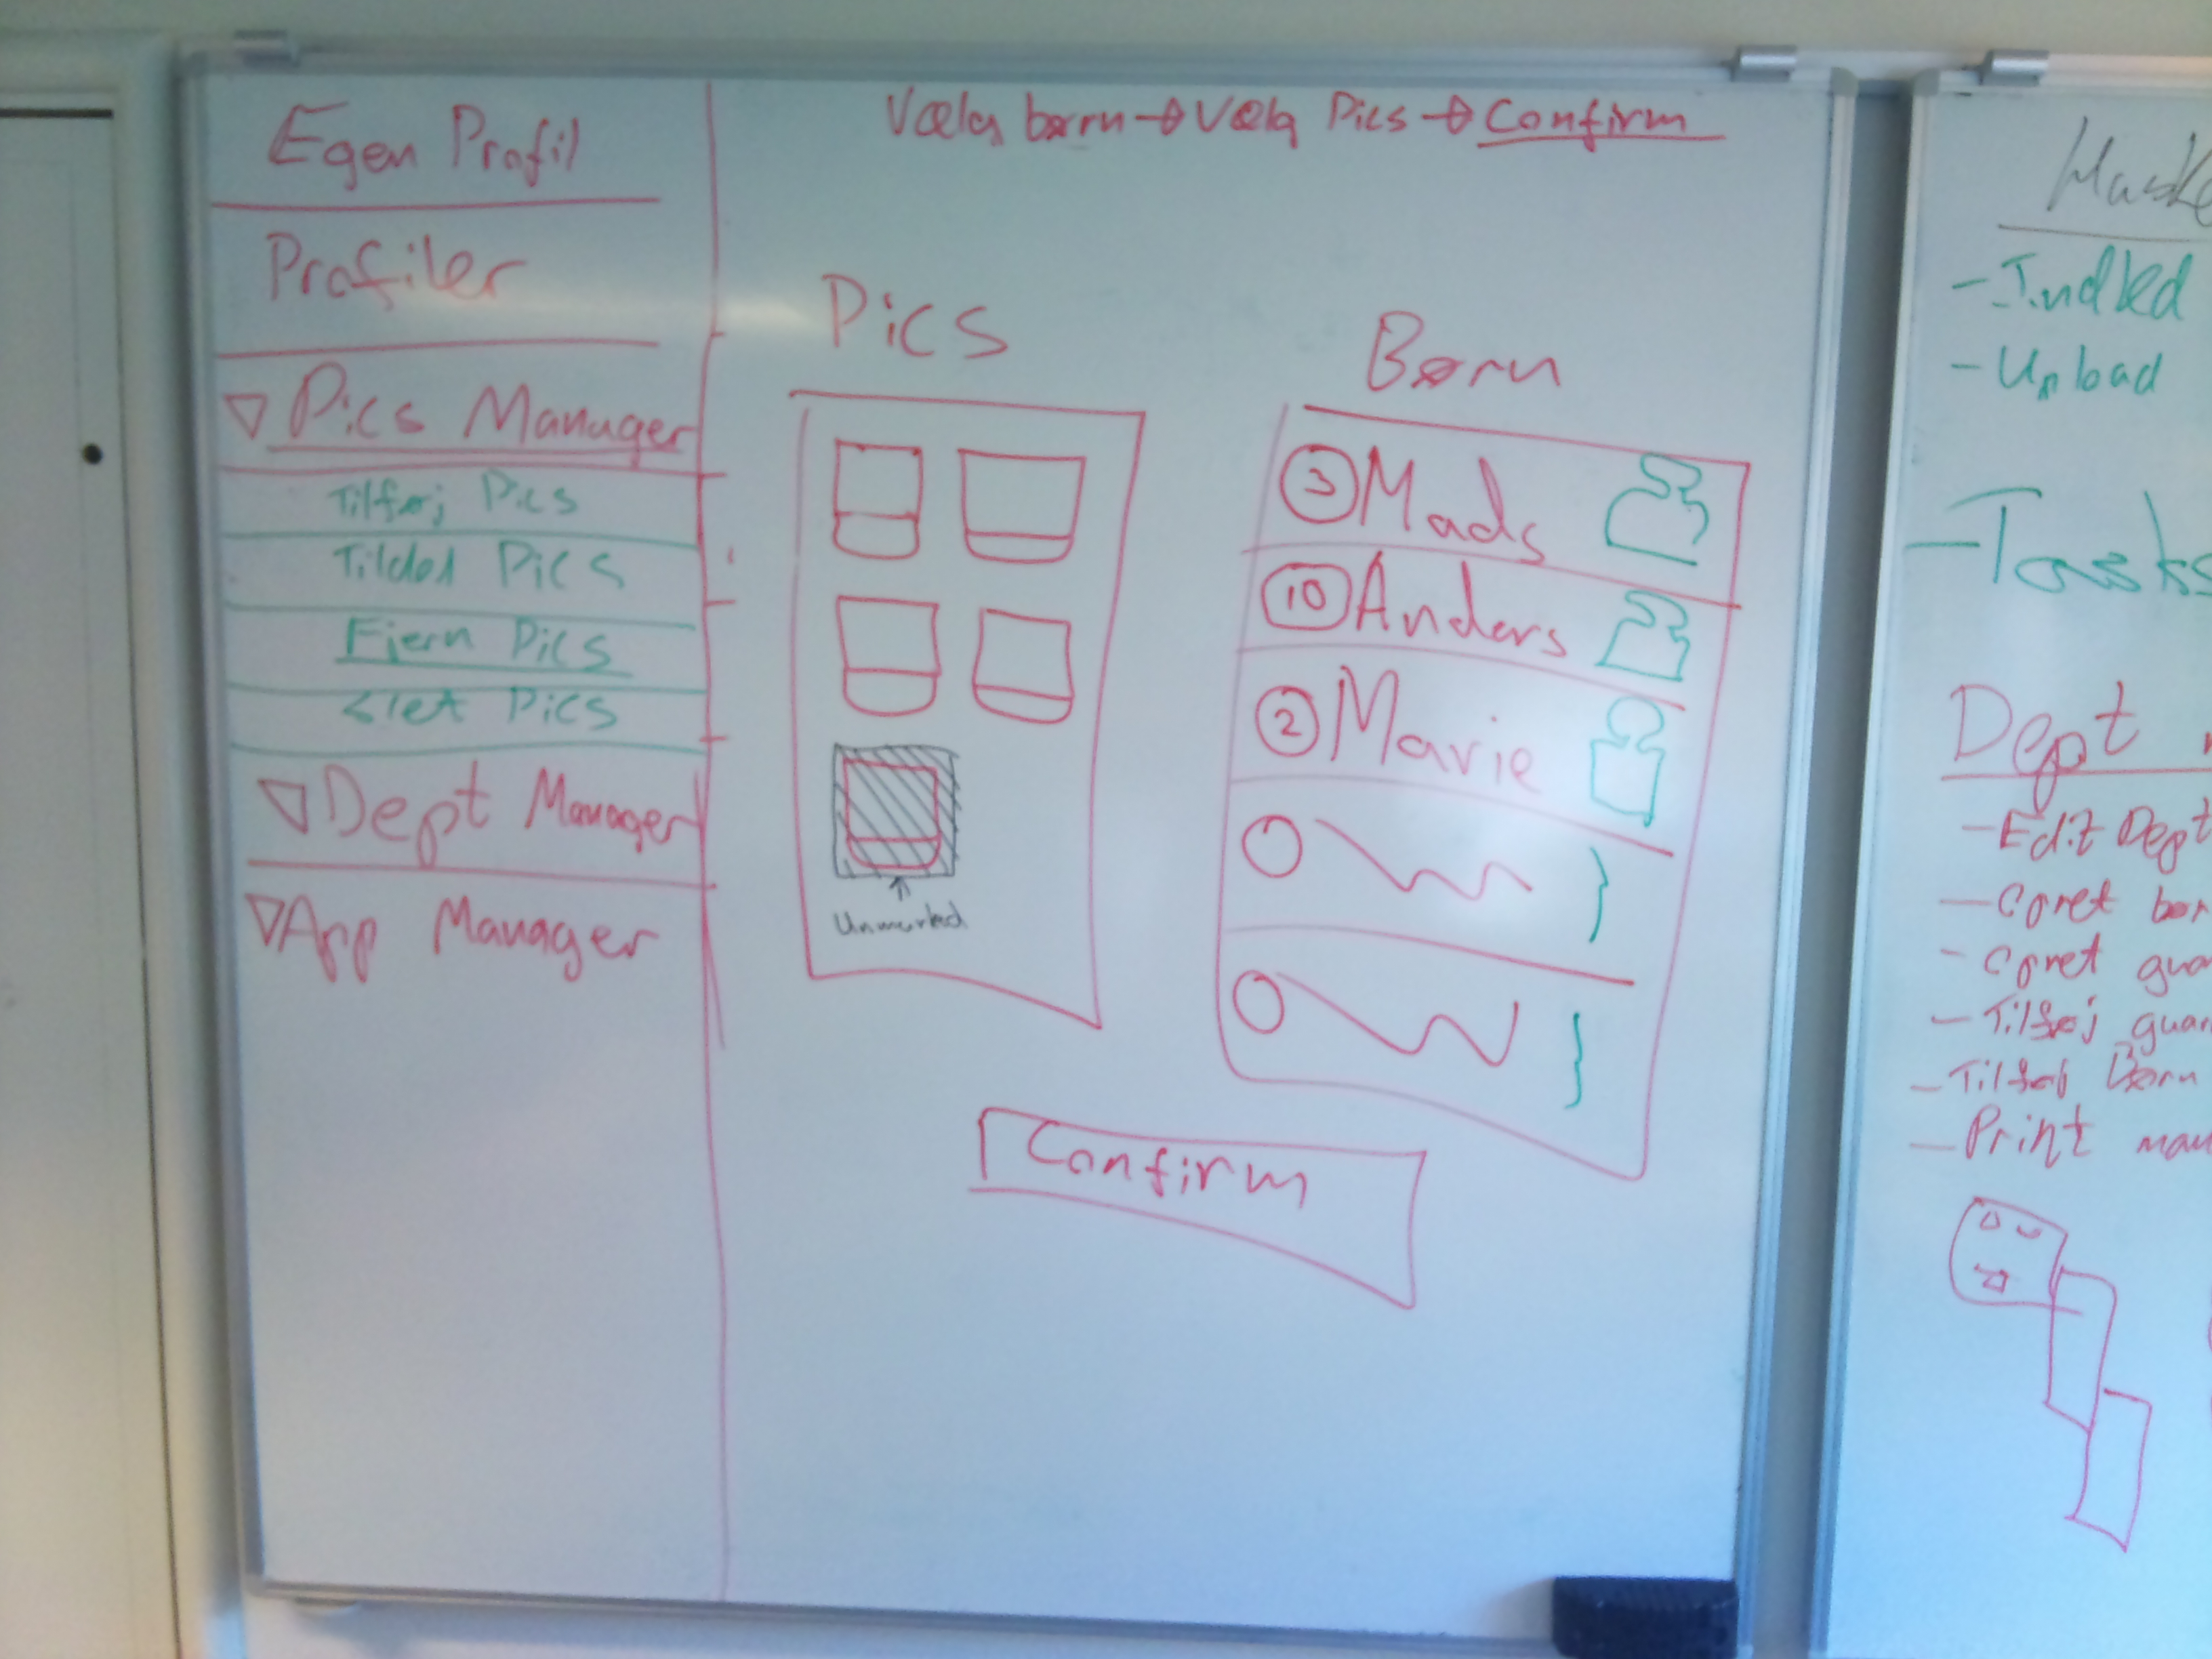 Egen Profil
Profiler
Pics Manager
Tilføj Pics
Tildel Pics
Fjern Pics
Slet Pics
Dept Manager
App Manager
Vælg børn → Vælg Pics → Confirm
Pics
Unmarked
Børn
3 Mads
10 Anders
2 Marie
Confirm
Huske
- Indled
- Upload
- Tasks
Dept
- Edit Dept
- Opret bør
- Opret gua
- Tilføj guar
- Tilføj Børn
- Print